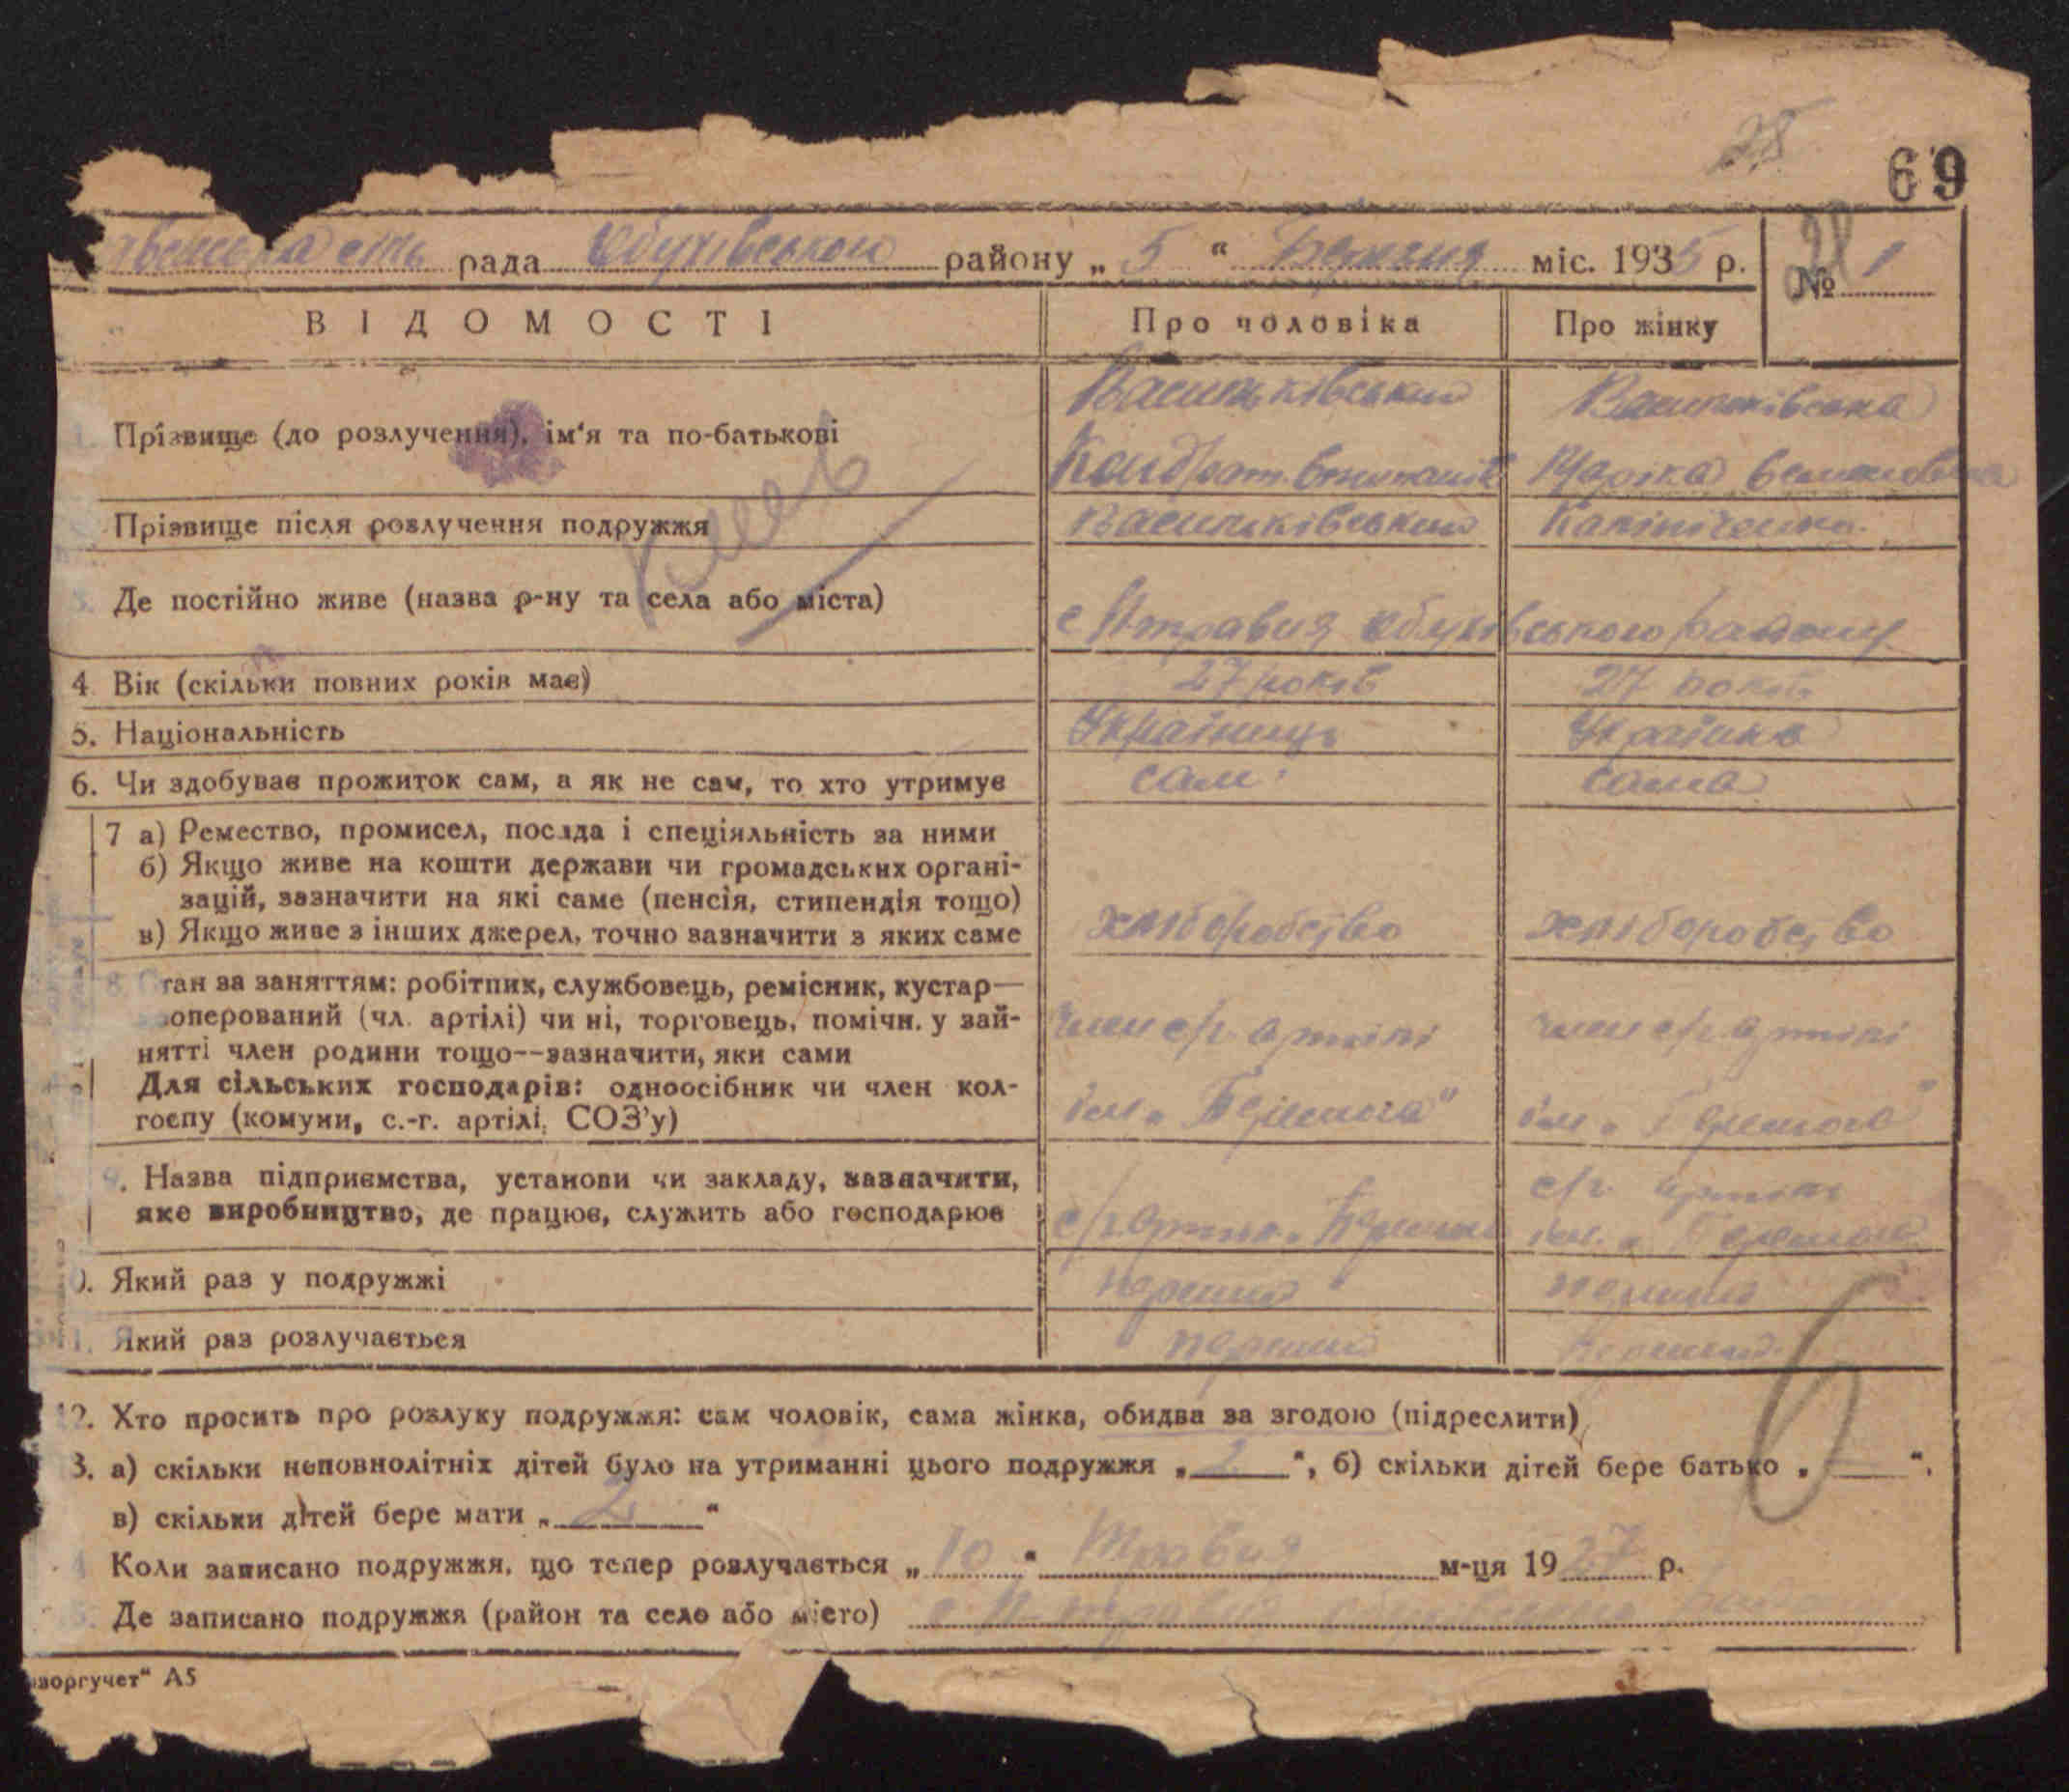 28
69
рада Обухівського району „ 5 “ Березня міс. 1935 р.
№ 1
ВІДОМОСТІ
Про чоловіка
Про жінку
Прізвище (до розлучення), ім'я та по-батькові
Васильківський
Кондрат
Васильківська
Марійка Семенівна
Прізвище після розлучення подружжя
Васильківський
Калініченко
Де постійно живе (назва р-ну та села або міста)
с Нтравня Обухівського району
4 Вік (скільки повних років має)
27 років
27 років
5. Національність
Українець
Українка
6. Чи здобуває прожиток сам, а як не сам, то хто утримує
сам
сама
7 а) Ремество, промисел, посада і спеціяльність за ними
б) Якщо живе на кошти держави чи громадських органі-
зацій, зазначити на які саме (пенсія, стипендія тощо)
в) Якщо живе з інших джерел, точно зазначити з яких саме
хліборобство
хліборобство
8. Стан за заняттям: робітник, службовець, ремісник, кустар—
оперований (чл. артілі) чи ні, торговець, помічн. у зай-
нятті член родини тощо--зазначити, яки сами
Для сільських господарів: одноосібник чи член кол-
госпу (комуни, с.-г. артілі, СОЗ'у)
член с/г. артілі
ім. „
член с/г. артілі
ім. „
9. Назва підприємства, установи чи закладу, зазначити,
яке виробництво, де працює, служить або господарює
с/г. артіль
с/г. артіль
ім. „
0. Який раз у подружжі
перший
перший
1. Який раз розлучається
перший
перший
12. Хто просить про розлуку подружжя: сам чоловік, сама жінка, обидва за згодою (підреслити)
3. а) скільки неповнолітніх дітей було на утриманні цього подружжя „ 2 “, б) скільки дітей бере батько „ — “,
в) скільки дітей бере мати „ 2 “
4 Коли записано подружжя, що тепер розлучається „ 10 “ Травня м-ця 1927 р.
5. Де записано подружжя (район та село або місто)
воргучет“ А5